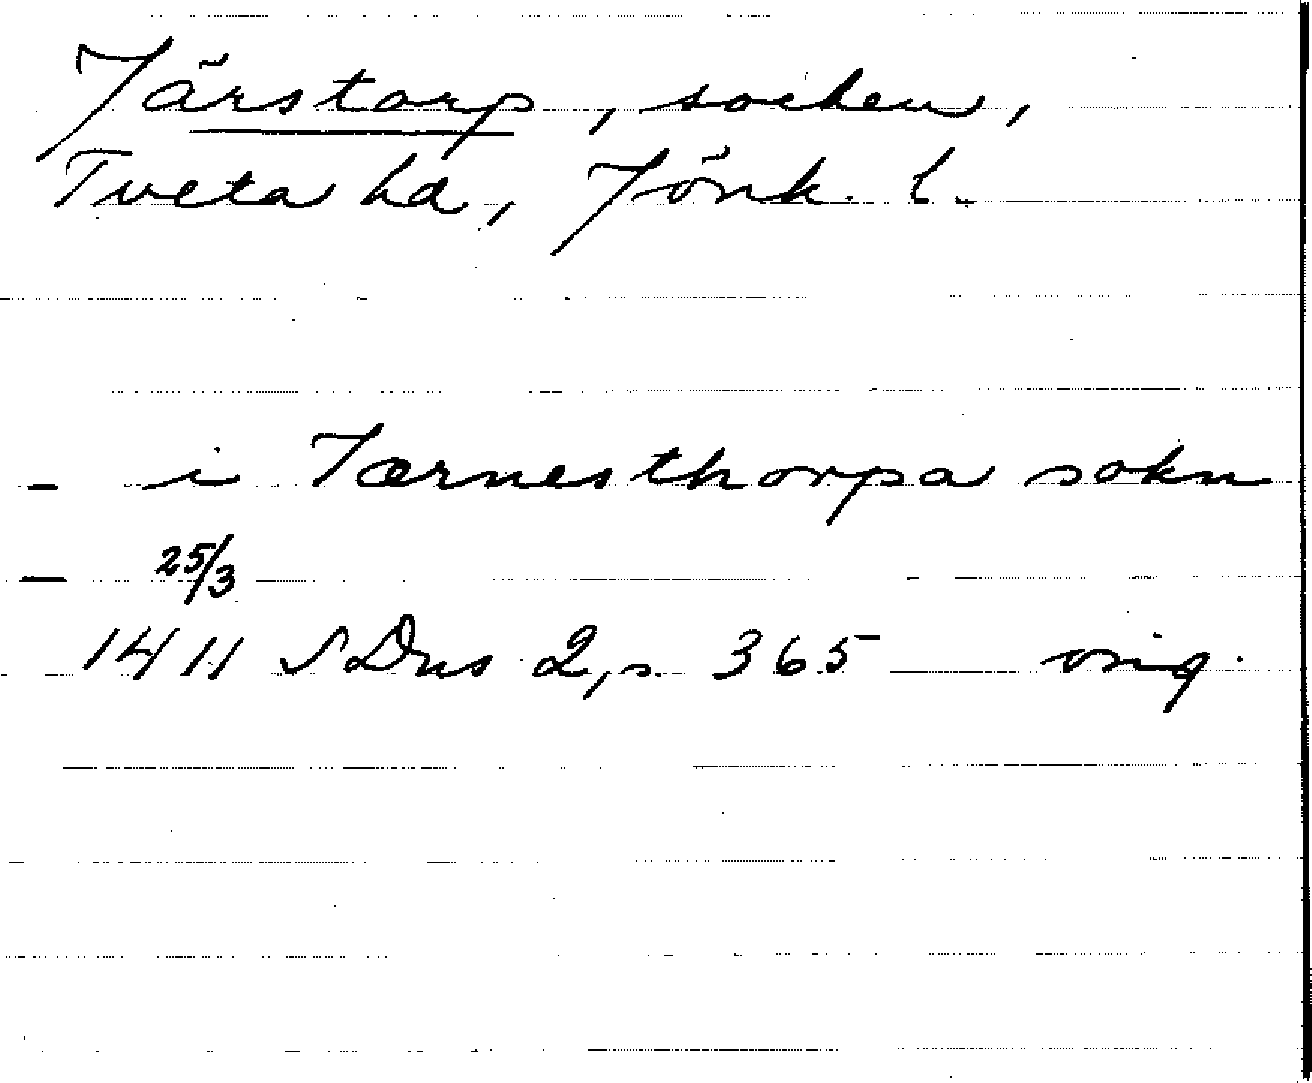 Järstorp, socken,
Tveta hd, Jönk. l.
- i Jærnesthorpa sokn
- 25/3
1411 SDns 2, s. 365 orig.